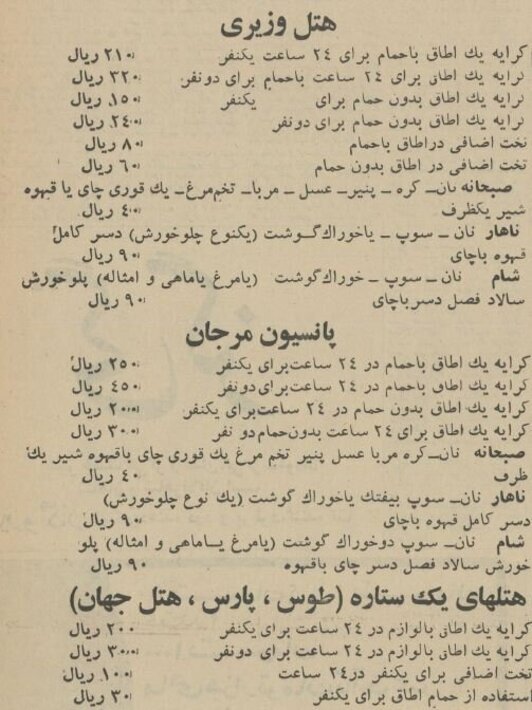 هتل وزیری
کرایه یك اطاق باحمام برای ۲٤ ساعت یکنفر ۲۱۰ ریال
کرایه یك اطاق برای ۲٤ ساعت باحمام برای دونفر ۳۲۰ ریال
کرایه یك اطاق بدون حمام برای یکنفر ۱٥۰ ریال
کرایه یك اطاق بدون حمام برای دونفر ۲٤۰ ریال
تخت اضافی دراطاق باحمام ۸۰ ریال
تخت اضافی در اطاق بدون حمام ٦۰ ریال
صبحانه نان_ کره _ پنیر_ عسل _ مربا_ تخم‌مرغ_ یك قوری چای یا قهوه
شیر یکظرف ٤۰ ریال
ناهار نان _ سوپ _ یاخوراك گوشت (یکنوع چلوخورش) دسر کامل
قهوه یاچای ۹۰ ریال
شام نان _ سوپ _ خوراك گوشت (یامرغ یاماهی و امثاله) پلوخورش
سالاد فصل دسر یاچای ۹۰ ریال
پانسیون مرجان
کرایه یك اطاق باحمام در ۲٤ ساعت برای یکنفر ۲٥۰ ریال
کرایه یك اطاق باحمام در ۲٤ ساعت برای دونفر ٤٥۰ ریال
کرایه یك اطاق بدون حمام در ۲٤ ساعت برای یکنفر ۲۰۰ ریال
کرایه یك اطاق برای ۲٤ ساعت بدون حمام دو نفر ۳۰۰ ریال
صبحانه نان_کره مربا عسل پنیر تخم مرغ یك قوری چای یاقهوه شیر یك
ظرف ٤۰ ریال
ناهار نان_ سوپ بیفتك یاخوراك گوشت (یك نوع چلوخورش)
دسر کامل قهوه یاچای ۹۰ ریال
شام نان_ سوپ دوخوراك گوشت (یامرغ یاماهی و امثاله) پلو
خورش سالاد فصل دسر چای یاقهوه ۹۰ ریال
هتلهای یك ستاره (طوس ، پارس ، هتل جهان)
کرایه یك اطاق بالوازم در ۲٤ ساعت برای یکنفر ۲۰۰ ریال
کرایه یك اطاق بالوازم در ۲٤ ساعت برای دونفر ۳۰۰ ریال
تخت اضافی برای یکنفر در۲٤ ساعت ۱۰۰ ریال
استفاده از حمام اطاق برای یکنفر ۳۰ ریال